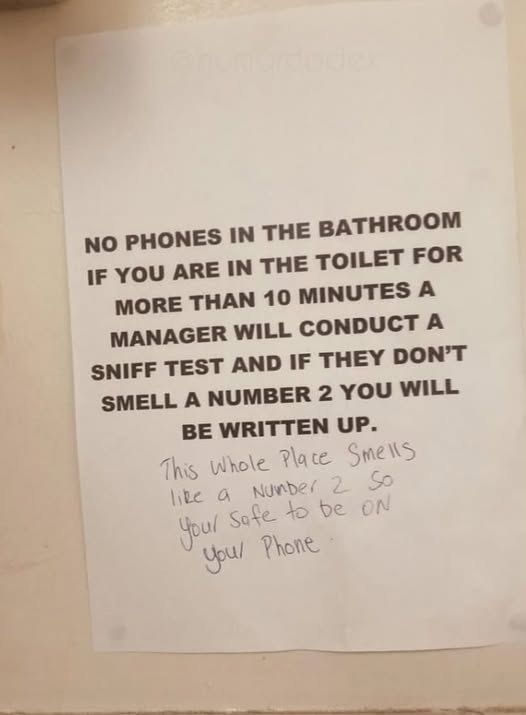 NO PHONES IN THE BATHROOM
IF YOU ARE IN THE TOILET FOR
MORE THAN 10 MINUTES A
MANAGER WILL CONDUCT A
SNIFF TEST AND IF THEY DON'T
SMELL A NUMBER 2 YOU WILL
BE WRITTEN UP.
This Whole Place Smells
like a Number 2 So
Your Safe to be ON
your Phone.